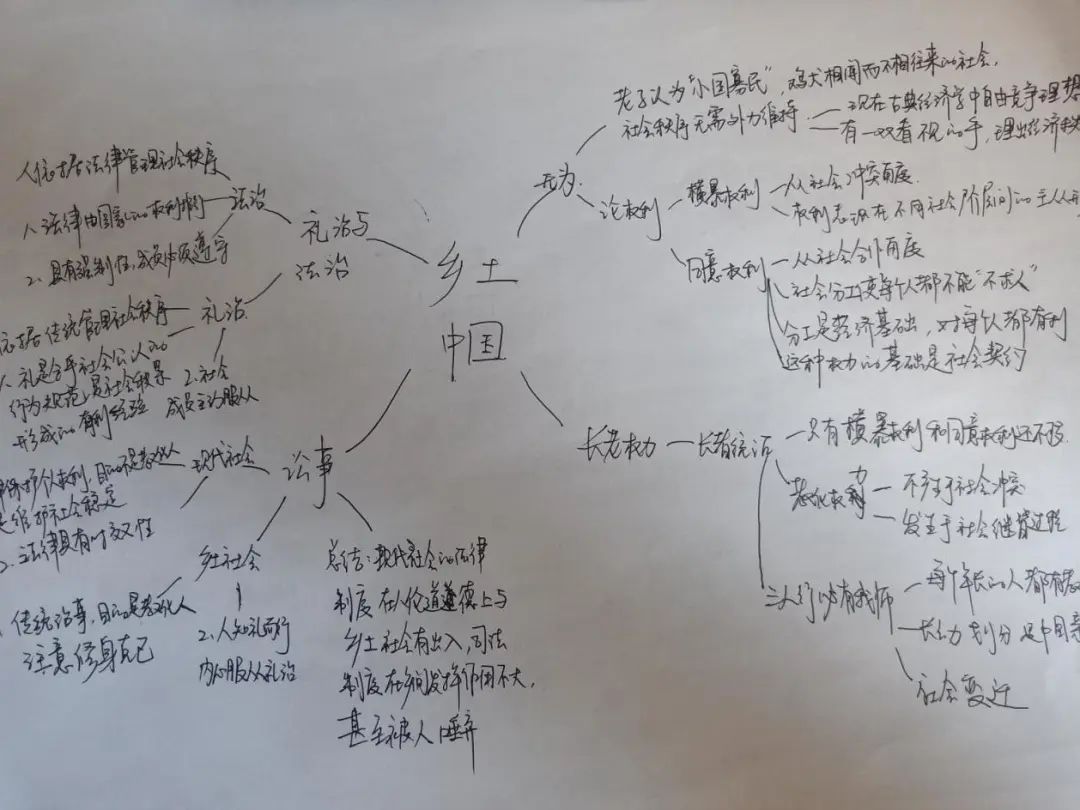 乡土
中国
礼治与
法治
法治
人依据法律管理社会秩序
1、法律由国家的权利推行
2、具有强制性,成员必须遵守
礼治
依据传统管理社会秩序
礼是合乎社会公认的
行为规范,是社会积累
形成的有利经验
2.社会
成员主动服从
讼事
现代社会
保护个人权利,目的不是教化人
是维护社会稳定
2、法律具有时效性
乡土社会
传统讼事,目的是教化人
注意修身克己
2、人知礼而行
内心服从礼治
总结:现代社会的法律
制度在人伦道德上与
乡土社会有出入,司法
制度在乡间发挥作用不大,
甚至被人唾弃
无为
老子认为“小国寡民”,鸡犬相闻而不相往来的社会,
社会秩序无需外力维持
现在古典经济学中自由竞争理想
有一双看不见的手,理出经济秩
论权利
横暴权利
从社会冲突角度
权利表现在不同社会阶层间的主从
同意权利
从社会合作角度
社会分工使每个人都不能“不求人”
分工是经济基础,对每个人都有利
这种权力的基础是社会契约
长老权力
长者统治
只有横暴权利和同意权利还不够
教化权力
不产生于社会冲突
发生于社会继替过程
三人行必有我师
每个年长的人都有教
长幼划分是中国亲
社会变迁